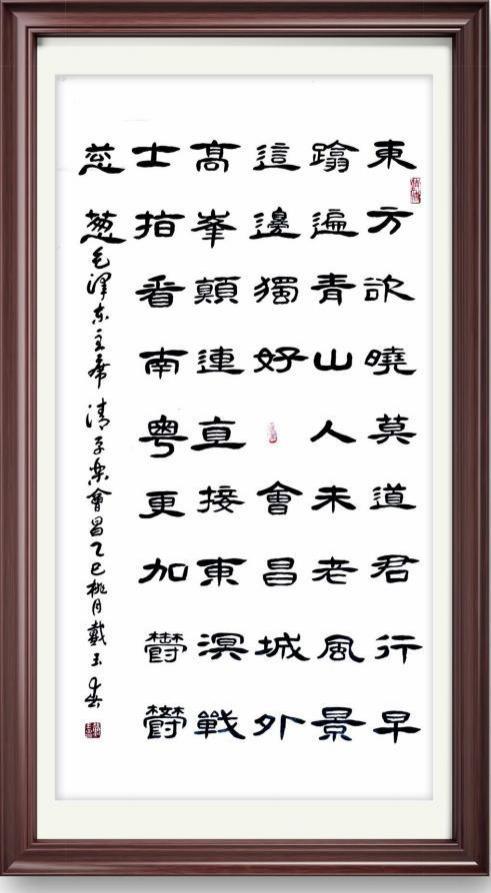 東方欲曉莫道君行早
踏遍青山人未老風景
這邊獨好 會昌城外
髙峯顛連直接東溟戰
士指看南粵更加欝欝
葱葱 毛澤东主席 清平楽會昌乙巳桃月戴玉